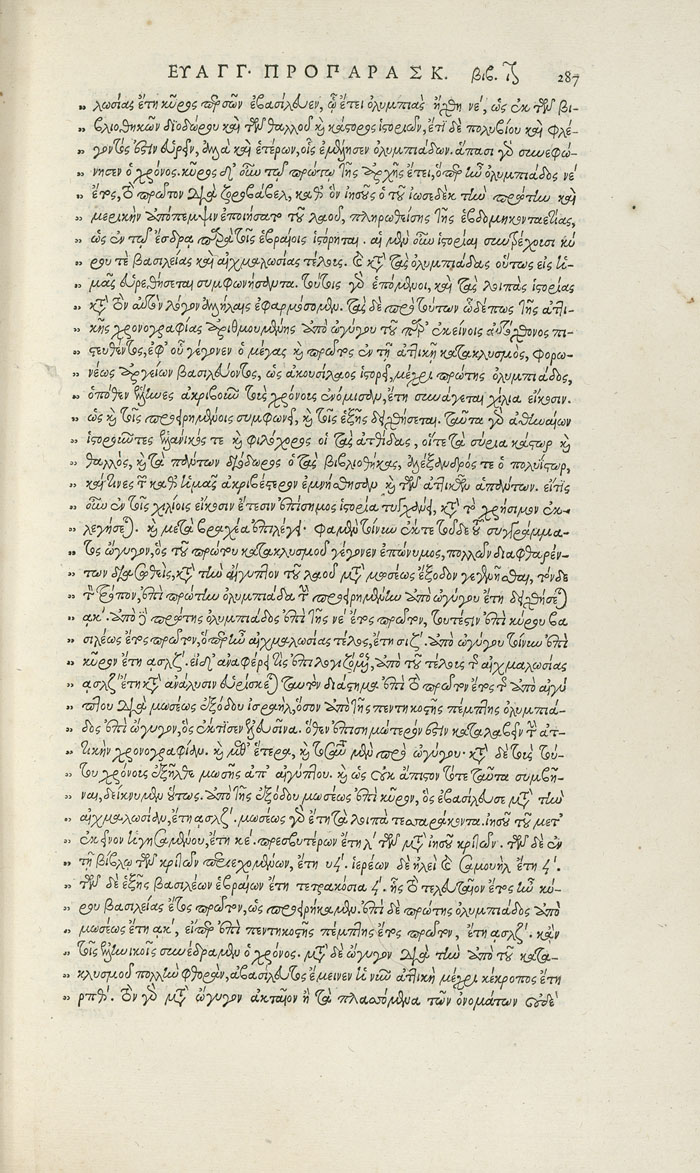 ΕΥΑΓΓ· ΠΡΟΠΑΡΑΣΚ. βιβ. ιζ 287
λωσίας ἔτη κῦρος περσῶν ἐβασίλευεν, ᾧ ἔτει ὀλυμπιὰς ἤχθη νε΄, ὡς ἐκ τῶν βι-
βλιοθηκῶν διοδώρου καὶ τῶν θαλλοῦ κὶ κάστορος ἱστοριῶν, ἔτι δὲ πολυβίου καὶ φλέ-
γοντός ἐστιν εὑρεῖν, ἀλλὰ καὶ ἑτέρων, οἷς ἐμέλησεν ὀλυμπιάδων. ἅπασι γὸ συνεφώ-
νησεν ὁ χρόνος. κῦρος δ' οὖν τῷ πρώτῳ τῆς ἀρχῆς ἔτει, ὅπερ ἦν ὀλυμπιάδος νε΄
ἔτος, τὸ πρῶτον διὰ ζοροβάβελ, καθ' ὃν ἰησοῦς ὁ τοῦ ἰωσεδὲκ τὴν πρώτην καὶ
μερικὴν ἀπόπεμψιν ἐποιήσατο τοῦ λαοῦ, πληρωθείσης τῆς ἑβδομηκονταετίας,
ὡς ἐν τῷ ἔσδρα παρὰ τοῖς ἑβραίοις ἱστόρηται. αἱ μὲν οὖν ἱστορίαι συντρέχουσι κύ
ρου τε βασιλείας καὶ αἰχμαλωσίας τέλους. καὶ κτ τὰς ὀλυμπιάδας οὕτως εἰς ἡ-
μᾶς εὑρεθήσεται συμφωνήσαντα. τούτοις γὸ ἑπόμενοι, καὶ τὰς λοιπὰς ἱστορίας
κτ τὸν αὐτὸν λόγον ἀλλήλαις ἐφαρμόσομεν. τὰς δὲ πρὸ τούτων ὡδέπως τῆς ἀττι-
κῆς χρονογραφίας ἀριθμουμένης ἀπὸ ὠγύγου τοῦ παρ' ἐκείνοις αὐτόχθονος πι-
στευθέντος, ἐφ' οὗ γέγονεν ὁ μέγας κὶ πρῶτος ἐν τῇ ἀττικῇ κατακλυσμὸς, φορω-
νέως ἀργείων βασιλεύοντος, ὡς ἀκουσίλαος ἱστορεῖ, μέχρι πρώτης ὀλυμπιάδος,
ὁπόθεν ἕλληνες ἀκριβοῦν τοὺς χρόνους ἐνόμισαν, ἔτη συνάγεται χίλια εἴκοσιν.
ὡς κὶ τοῖς προειρημένοις συμφωνεῖ, κὶ τοῖς ἑξῆς δειχθήσεται. ταῦτα γὸ ἀθηναίων
ἱστοροῦντες ἑλλάνικός τε κὶ φιλόχορος οἱ τὰς ἀτθίδας, οἵ τε τὰ σύρια κάστωρ κὶ
θαλλὸς, κὶ τὰ πάντων διόδωρος ὁ τὰς βιβλιοθήκας, ἀλέξανδρός τε ὁ πολυΐστωρ,
καί τινες τ καθ' ἡμᾶς ἀκριβέστερον ἐμνήσθησαν κὶ τῶν ἀττικῶν ἁπάντων. εἴ τις
οὖν ἐν τοῖς χιλίοις εἴκοσιν ἔτεσιν ἐπίσημος ἱστορία τυγχάνῃ, κτ τὸ χρήσιμον ἐκ-
λεγήσεται. κὶ μετὰ βραχέα ἐπιλέγει· φαμὲν τοίνυν ἔκ γε τοῦδε τοῦ συγγράμμα-
τος ὤγυγον, ὃς τοῦ πρώτου κατακλυσμοῦ γέγονεν ἐπώνυμος, πολλῶν διαφθαρέν-
των διασωθεὶς, κτ τὴν αἰγύπτου τοῦ λαοῦ μτ μωσέως ἔξοδον γεγενῆσθαι, τόνδε
τ τρόπον, ἐπὶ πρώτην ὀλυμπιάδα τ προειρημένην ἀπὸ ὠγύγου ἔτη δειχθήσεται
͵ακ΄. ἀπὸ δὲ πρώτης ὀλυμπιάδος ἐπὶ τῆς νε΄ ἔτος πρῶτον, τουτέστιν ἐπὶ κύρου βα
σιλέως ἔτος πρῶτον, ὅπερ ἦν αἰχμαλωσίας τέλος, ἔτη σιζ΄. ἀπὸ ὠγύγου τοίνυν ἐπὶ
κῦρον ἔτη ͵ασλζ΄. εἰ δ' ἀναφέρει τις ἐπιλογιζόμενος, ἀπὸ τοῦ τέλους τ αἰχμαλωσίας
͵ασλζ΄ ἔτη κτ ἀνάλυσιν εὑρίσκεται ταυτὸν διάστημα ἐπὶ τὸ πρῶτον ἔτος τ ἀπὸ αἰγύ
πτου διὰ μωσέως ἐξόδου ἰσραὴλ, ὅσον ἀπὸ τῆς πεντηκοστῆς πέμπτης ὀλυμπιά-
δος ἐπὶ ὤγυγον, ὃς ἔκτισεν ἐλευσῖνα. ὅθεν ἐπισημώτερόν ἐστιν καταλαβεῖν τ ἀτ-
τικὴν χρονογραφίαν. κὶ μεθ' ἕτερα, κὶ ταῦτα μὲν πρὸ ὠγύγου· κτ δὲ τοὺς τού-
του χρόνους ἐξῆλθε μωσῆς ἀπ' αἰγύπτου. κὶ ὡς οὐκ ἄπιστον τότε ταῦτα συμβῆ-
ναι, δείκνυμεν οὕτως. ἀπὸ τῆς ἐξόδου μωσέως ἐπὶ κῦρον, ὃς ἐβασίλευσε μτ τὴν
αἰχμαλωσίαν, ἔτη ͵ασλζ΄. μωσέως γὸ ἔτη τὰ λοιπὰ τεσσαράκοντα. ἰησοῦ τοῦ μετ'
ἐκεῖνον ἡγησαμένου, ἔτη κε΄. πρεσβυτέρων ἔτη λ΄ τῶν μτ ἰησοῦ κριτῶν. τῶν δὲ ἐν
τῇ βίβλῳ τῶν κριτῶν περιεχομένων, ἔτη υϟ΄. ἱερέων δὲ ἠλεὶ καὶ σαμουὴλ ἔτη ϟ΄.
τῶν δὲ ἑξῆς βασιλέων ἑβραίων ἔτη τετρακόσια ϟ΄. ἧς τὸ τελευταῖον ἔτος ἦν κύ-
ρου βασιλείας ἔτος πρῶτον, ὡς προειρήκαμεν. ἐπὶ δὲ πρώτης ὀλυμπιάδος ἀπὸ
μωσέως ἔτη ͵ακ΄, εἴπερ ἐπὶ πεντηκοστῆς πέμπτης ἔτος πρῶτον, ἔτη ͵ασλζ΄. κἂν
τοῖς ἑλληνικοῖς συνέδραμεν ὁ χρόνος. μτ δὲ ὤγυγον διὰ τὴν ἀπὸ τοῦ κατα-
κλυσμοῦ πολλὴν φθορὰν, ἀβασίλευτος ἔμεινεν ἡ νῦν ἀττικὴ μέχρι κέκροπος ἔτη
ρπθ΄. τὸν γὸ μτ ὤγυγον ἀκταῖον ἢ τὰ πλασσόμενα τῶν ὀνομάτων οὐδὲ